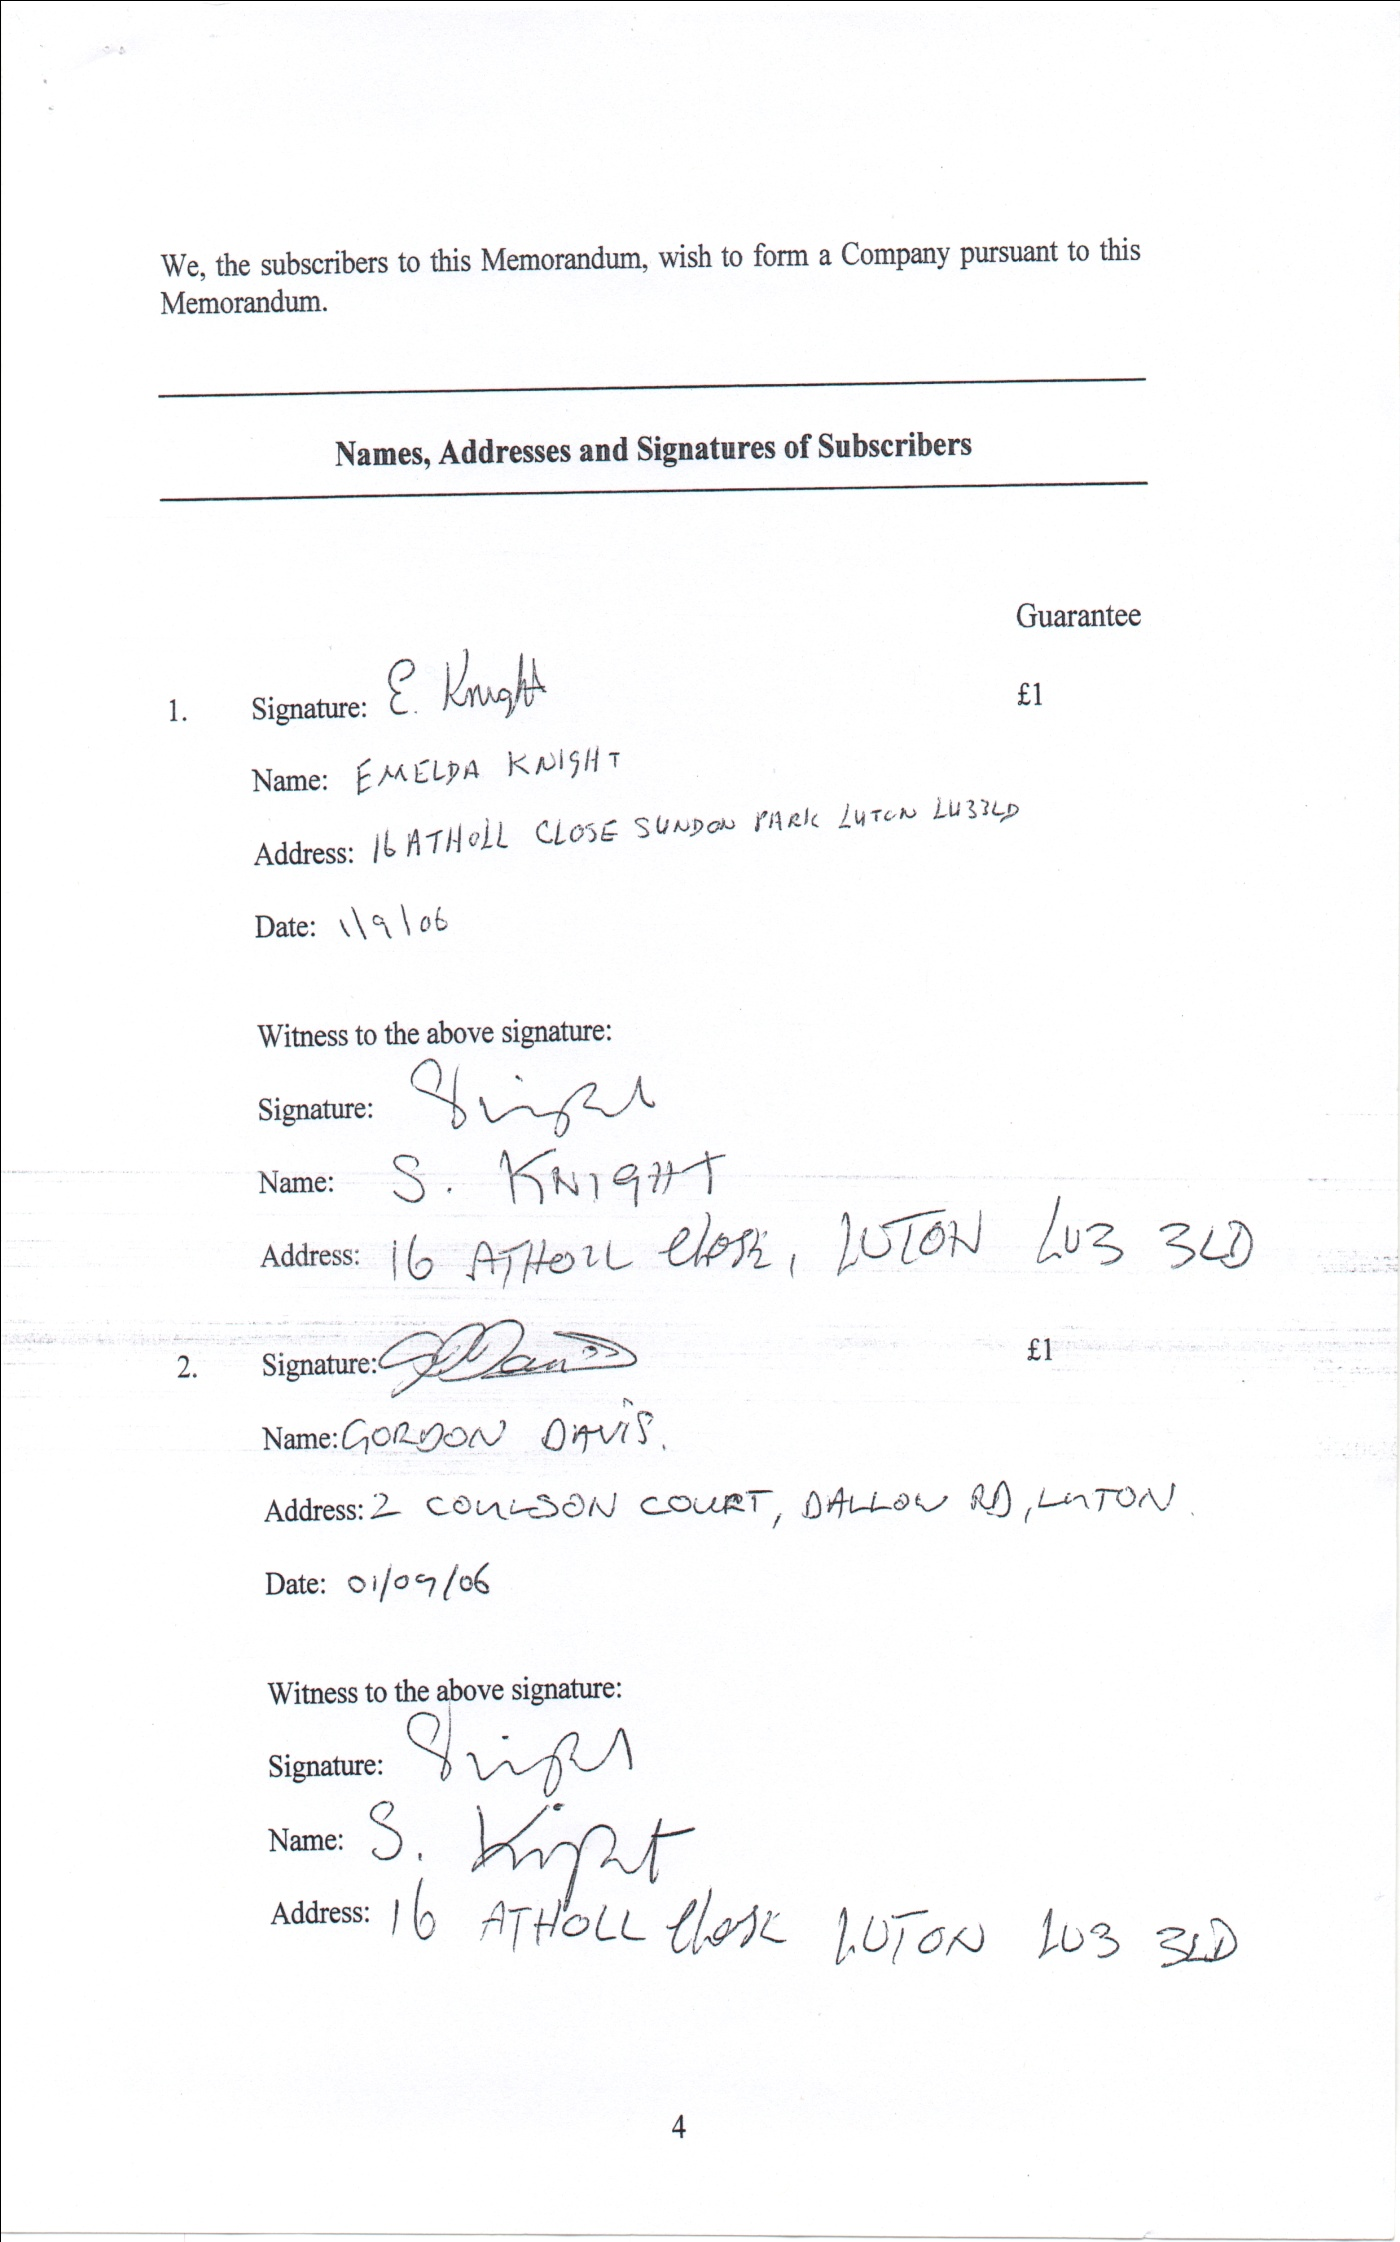 We, the subscribers to this Memorandum, wish to form a Company pursuant to this
Memorandum.
Names, Addresses and Signatures of Subscribers
Guarantee
1. Signature: E. Knight £1
Name: EMELDA KNIGHT
Address: 16 ATHOLL CLOSE SUNDON PARK LUTON LU33LD
Date: 1\9\06
Witness to the above signature:
Signature:
Name: S. KNIGHT
Address: 16 ATHOLL Close, LUTON LU3 3LD
2. Signature: £1
Name: GORDON DAVIS.
Address: 2 COULSON COURT, DALLOW RD, LUTON.
Date: 01/09/06
Witness to the above signature:
Signature:
Name: S. Knight
Address: 16 ATHOLL Close LUTON LU3 3LD
4